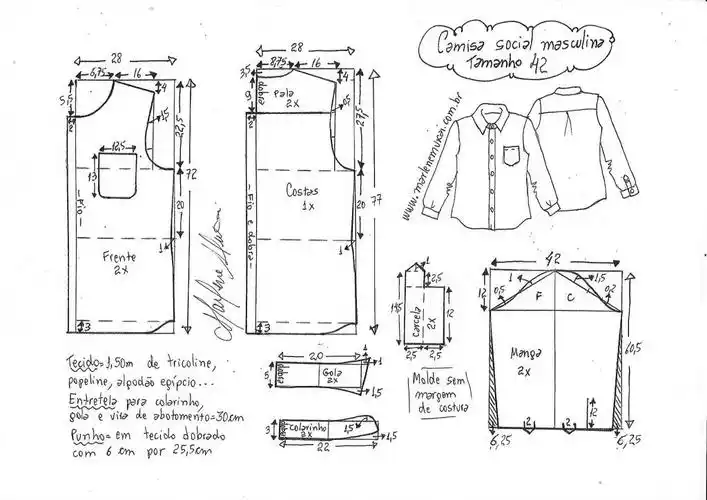 Camisa social masculina
Tamanho 42
www.marlenemukai.com.br
28
6,75
16
4
5,5
2
1,5
22,5
72
12,5
13
Fio
20
1
Frente
2x
3
28
8,75
16
3,5
4
9
dobra
Pala
2x
2
27,5
Costas
1x
Fio e dobra
20
77
1
3
Marlene Mukai
1
2,5
14,5
carcela
2x
12
2,5
2,5
42
12
1
1,5
0,5
0,2
F
C
Manga
2x
60,5
12
2
2
6,25
6,25
20
1
5
dobra
Gola
2x
1
1,5
3
dobra
colarinho
2x
1,5
1,5
22
Molde sem
margem
de costura
Tecido= 1,50m de tricoline,
popeline, algodão egípcio...
Entretela para colarinho,
gola e vira de abotomento=30cm
Punho= em tecido dobrado
com 6 cm por 25,5cm